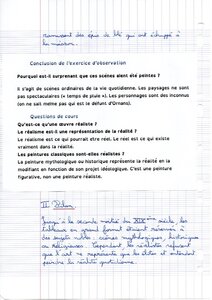 ramassent des épis de blé qui ont échappé à
la moisson.
Conclusion de l'exercice d'observation
Pourquoi est-il surprenant que ces scènes aient été peintes ?
Il s'agit de scènes ordinaires de la vie quotidienne. Les paysages ne sont
pas spectaculaires (« temps de pluie »). Les personnages sont des inconnus
(on ne sait même pas qui est le défunt d'Ornans).
Questions de cours
Qu'est-ce qu'une œuvre réaliste ?
Le réalisme est-il une représentation de la réalité ?
Le réalisme est ce qui pourrait être réel. Le réel est ce qui existe
vraiment dans la réalité.
Les peintures classiques sont-elles réalistes ?
La peinture mythologique ou historique représente la réalité en la
modifiant en fonction de son projet idéologique. C'est une peinture
figurative, non une peinture réaliste.
II
Jusqu'à la seconde moitié du XIXème siècle, les
tableaux en grand format étaient réservés à
des sujets nobles : scènes mythologiques, historiques
ou religieuses. Cependant, les réalistes refusent
que l'art ne représente que les élites et entendent
peindre la réalité quotidienne.